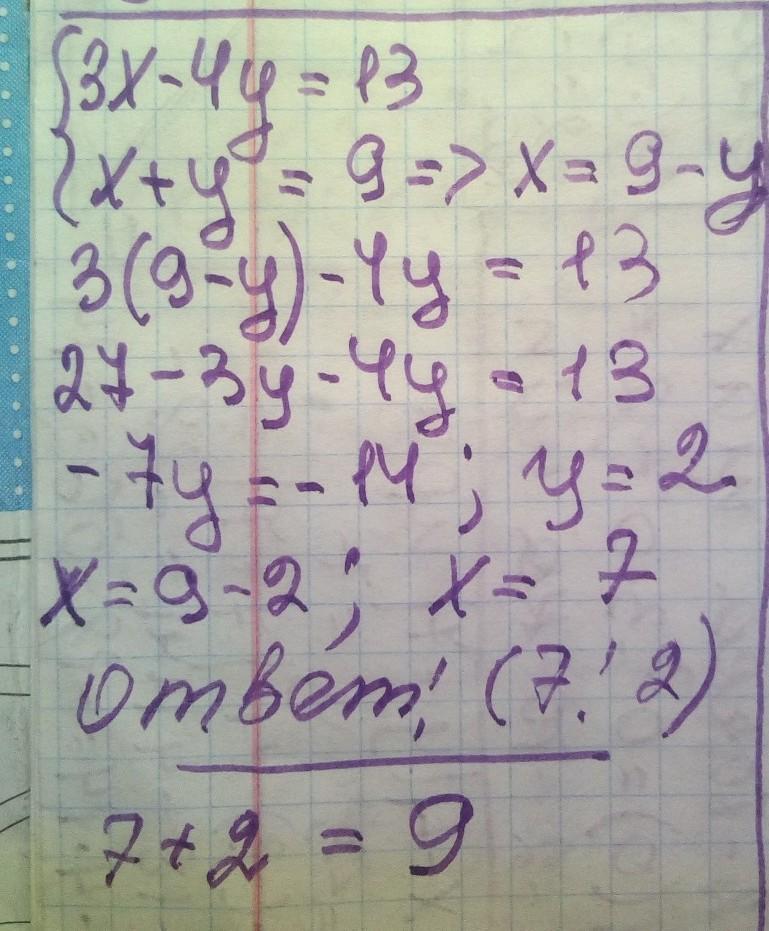 {3x-4y = 13
{x+y = 9 => x = 9-y
3(9-y)-4y = 13
27-3y-4y = 13
-7y = -14; y = 2
x = 9-2; x = 7
Ответ: (7; 2)
7+2 = 9